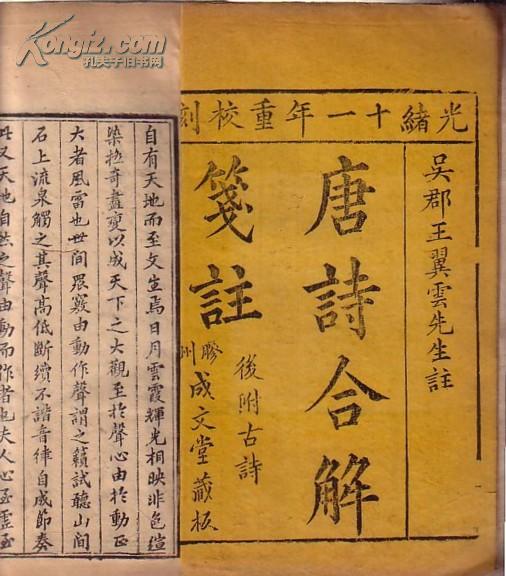 光緒十一年重校刻
吳郡王翼雲先生註
唐詩合解
箋註
後附古詩
膠州
成文堂藏板
自有天地而至文生焉日月雲霞輝光相映非色絢
染極奇盡變以成天下之大觀至於聲心由於動正
大者風雷也世間眾竅由動作聲謂之籟試聽山間
石上流泉觸之其聲高低斷續不諧音律自成節奏
此又天地自然之聲由動而作者也夫人心至靈至
Kongfz.com
孔夫子旧书网